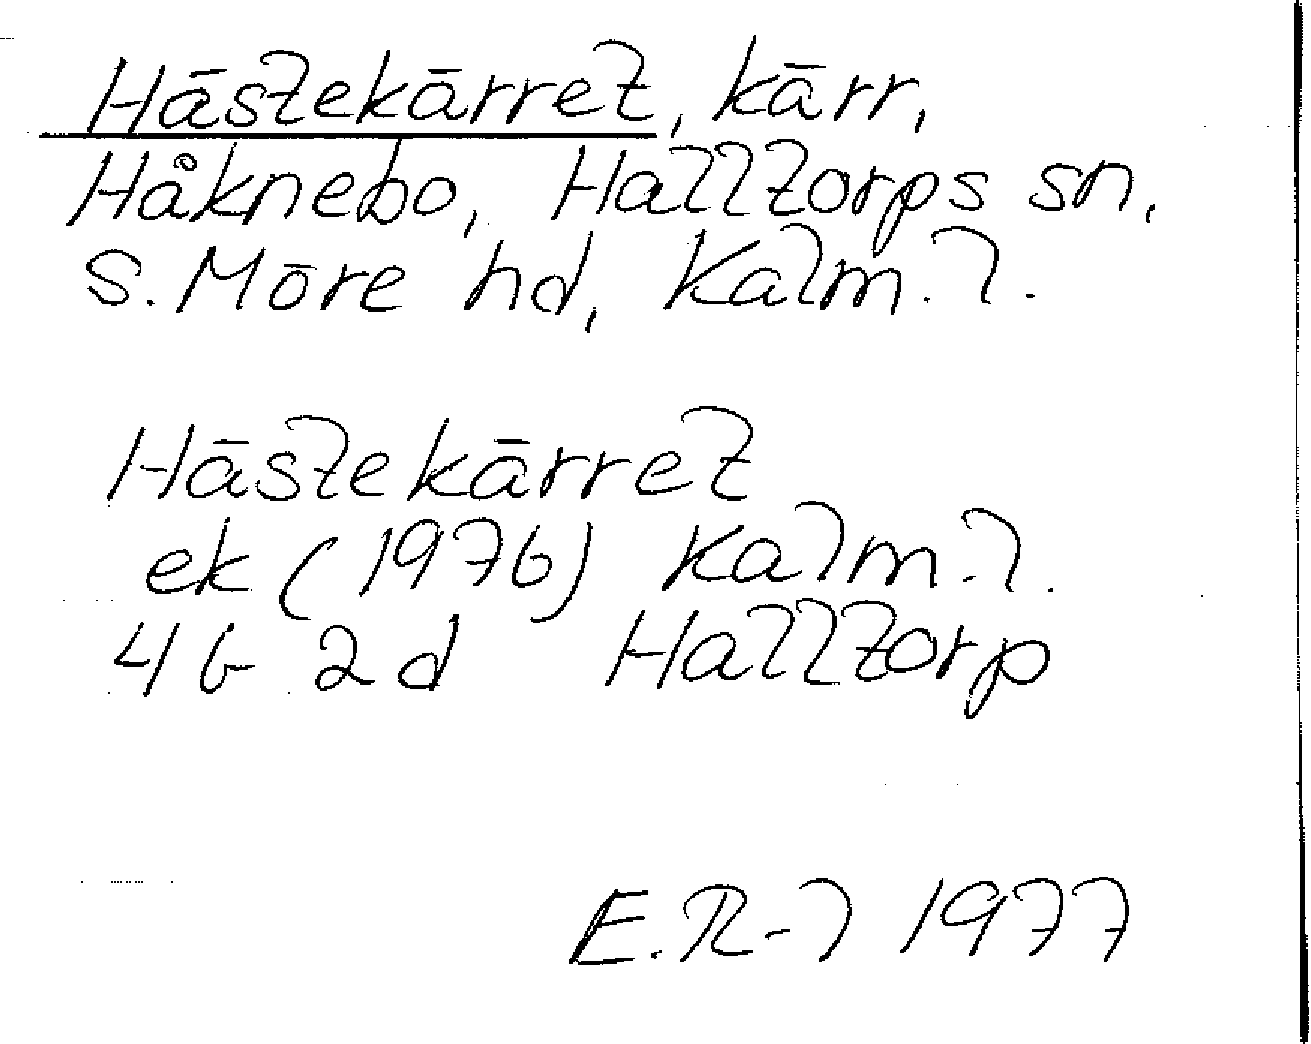 Hästekärret, kärr,
Håknebo, Halltorps sn,
S. Möre hd, Kalm. l.
Hästekärret
ek (1976) Kalm. l.
4 G 2d Halltorp
E. R-l 1977